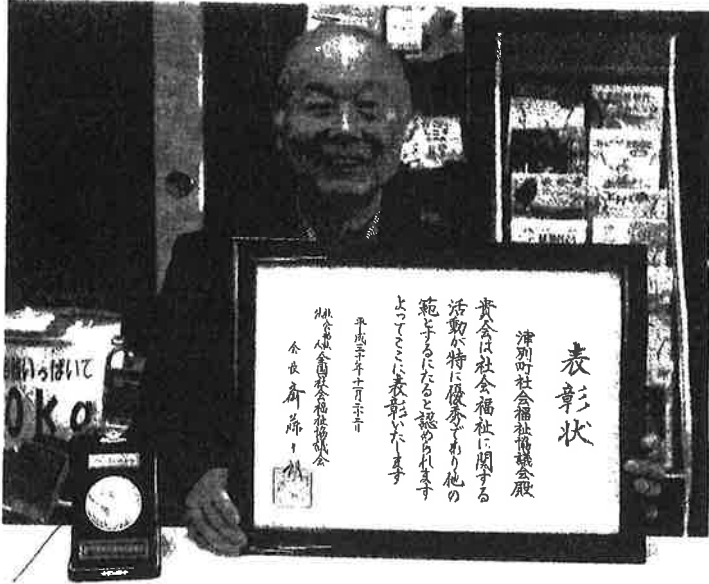 表彰状
津別町社会福祉協議会殿
貴会は社会福祉に関する
活動が特に優秀であり他の
範とするにたると認められます
よってここに表彰いたします
平成三十年十一月二十二日
社会福祉法人全国社会福祉協議会
会長 斎藤十朗
いっぱいで
OKo